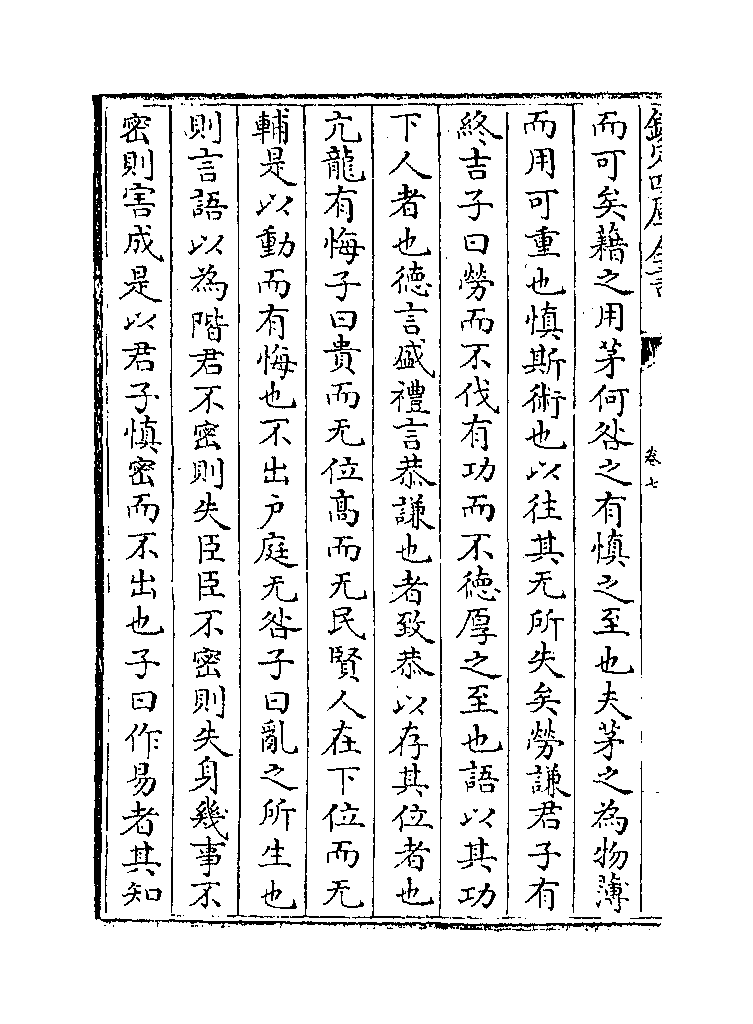 欽定四庫全書
卷七
而可矣藉之用茅何咎之有慎之至也夫茅之為物薄
而用可重也慎斯術也以往其无所失矣勞謙君子有
終吉子曰勞而不伐有功而不德厚之至也語以其功
下人者也德言盛禮言恭謙也者致恭以存其位者也
亢龍有悔子曰貴而无位髙而无民賢人在下位而无
輔是以動而有悔也不出户庭无咎子曰亂之所生也
則言語以為階君不密則失臣臣不密則失身幾事不
密則害成是以君子慎密而不出也子曰作易者其知